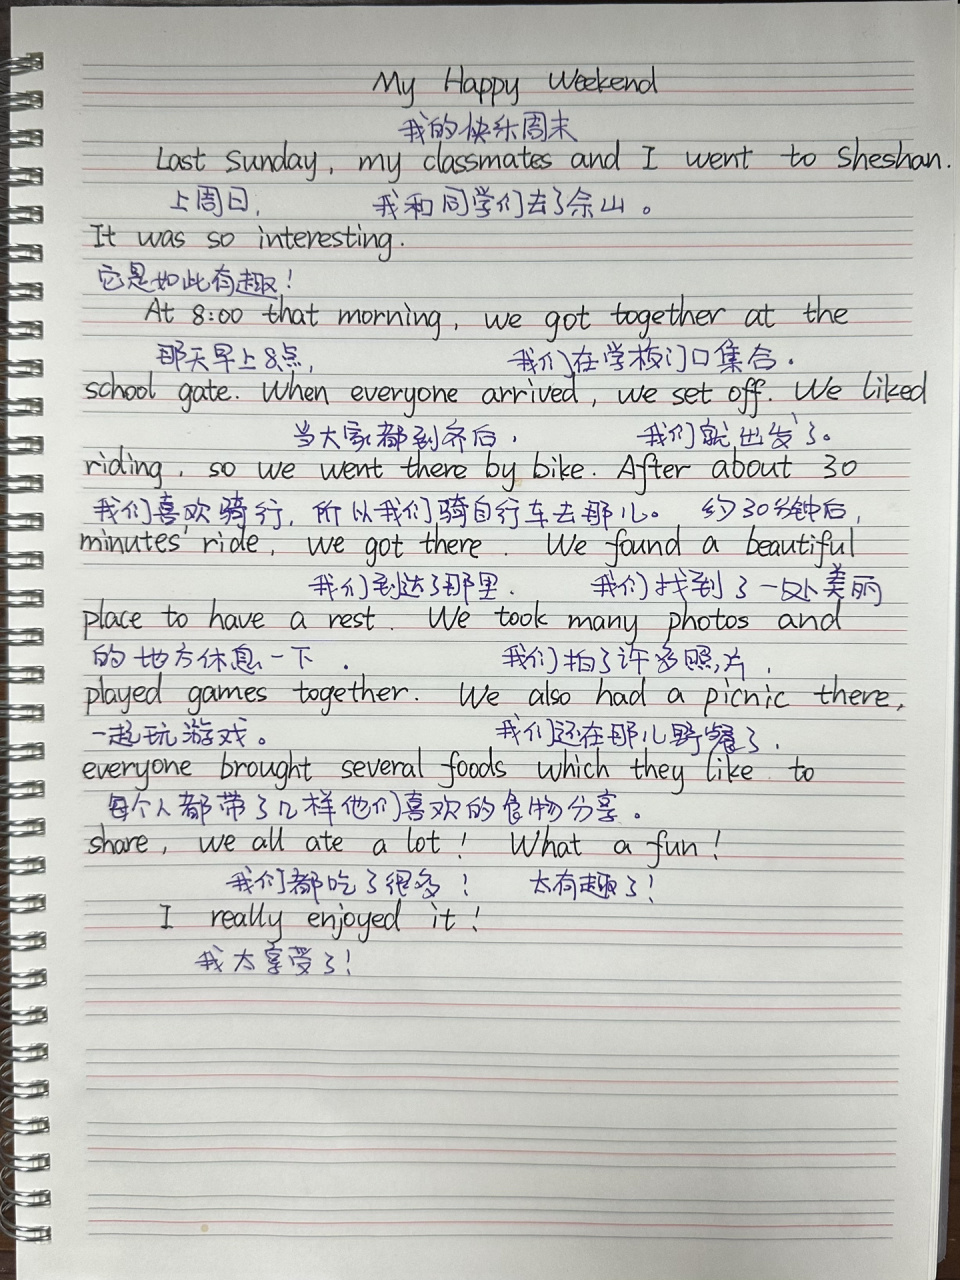 My Happy Weekend
我的快乐周末
Last Sunday, my classmates and I went to Sheshan.
上周日, 我和同学们去了佘山。
It was so interesting.
它是如此有趣!
At 8:00 that morning, we got together at the
那天早上8点, 我们在学校门口集合.
school gate. When everyone arrived, we set off. We liked
当大家都到齐后, 我们就出发了。
riding, so we went there by bike. After about 30
我们喜欢骑行, 所以我们骑自行车去那儿。 约30分钟后,
minutes' ride, we got there. We found a beautiful
我们到达了那里. 我们找到了一处美丽
place to have a rest. We took many photos and
的地方休息一下. 我们拍了许多照片,
played games together. We also had a picnic there,
一起玩游戏。 我们还在那儿野餐了.
everyone brought several foods which they like to
每个人都带了几样他们喜欢的食物分享.
share, we all ate a lot! What a fun!
我们都吃了很多! 太有趣了!
I really enjoyed it!
我太享受了!